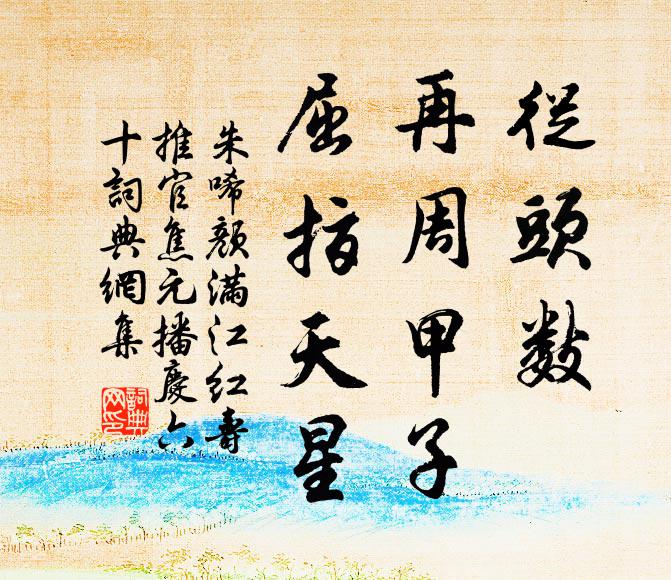 從頭數
再周甲子
屈指天星
朱晞顏滿江紅壽
推官焦元播慶六
十詞典網集
詞典
网印